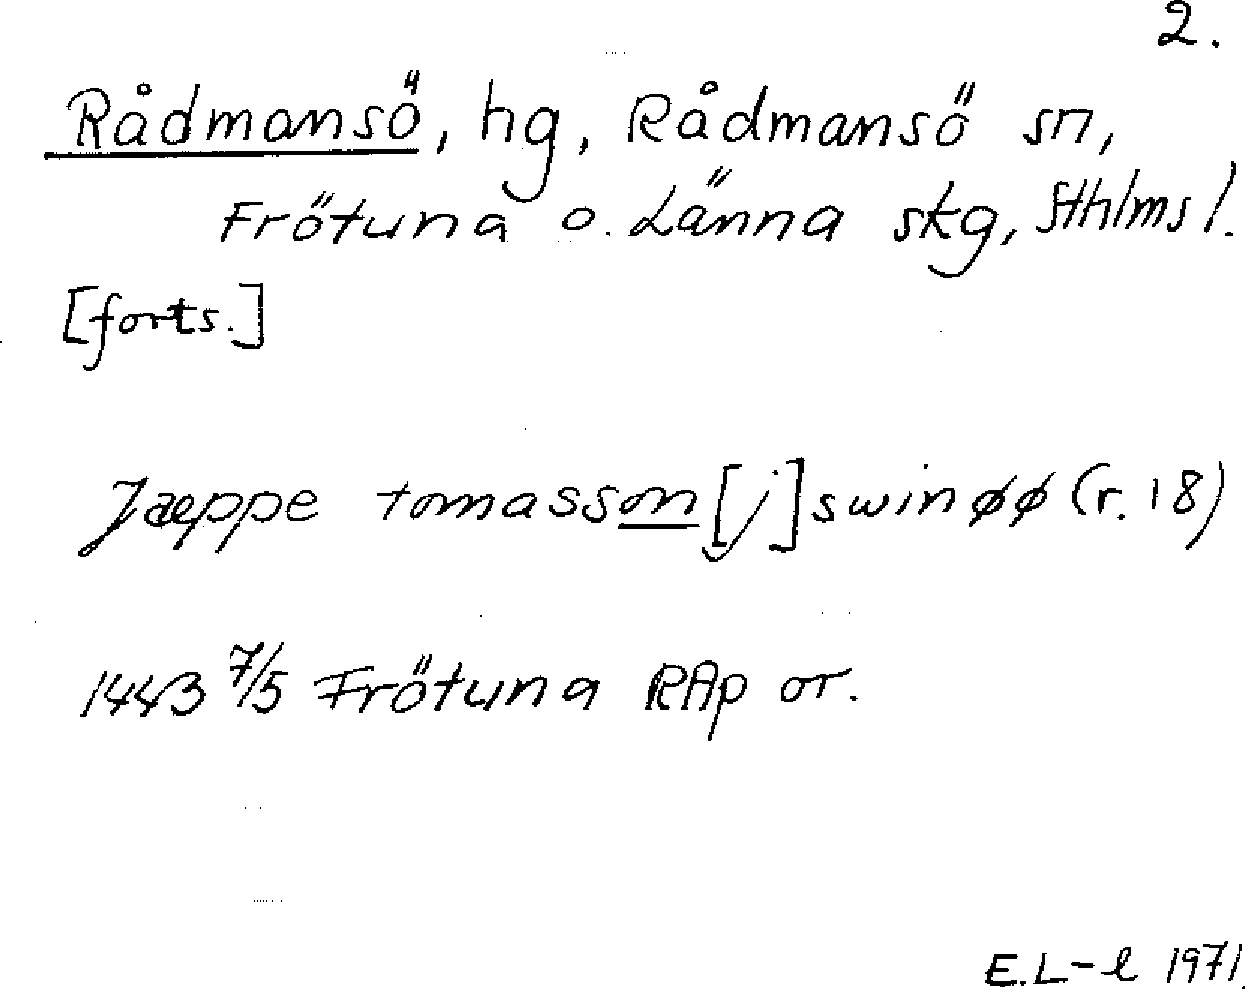 2.
Rådmansö, hg, Rådmansö sn,
Frötuna o. Länna skg, Sthlms l.
[forts.]
Jæppe tomasson [j] swinøø (r. 18)
1443 7/5 Frötuna RAp or.
E.L-l 1971.